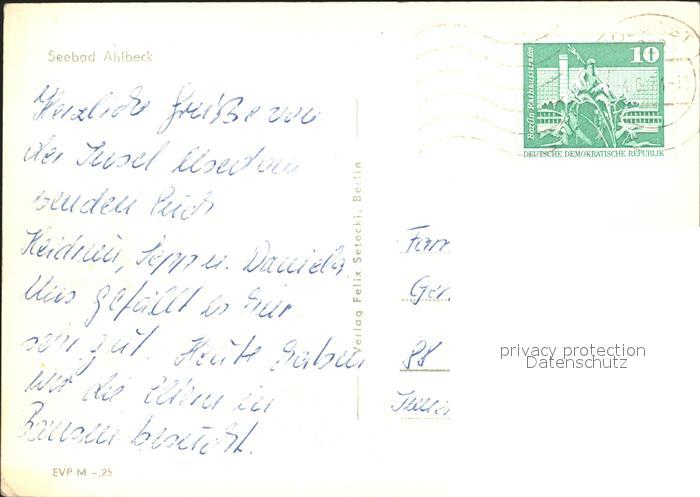 Seebad Ahlbeck
Herzliche Grüße von
der Insel Usedom
senden Euch
Heidrun, Sepp u. Daniela.
Uns gefällt es hier
sehr gut. Heute haben
wir die Eltern in
Bansin besucht.
EVP M –,25
Verlag Felix Setecki, Berlin
10
Berlin-Rathausstraße
DEUTSCHE DEMOKRATISCHE REPUBLIK
Fam
Ger
88
privacy protection
Datenschutz